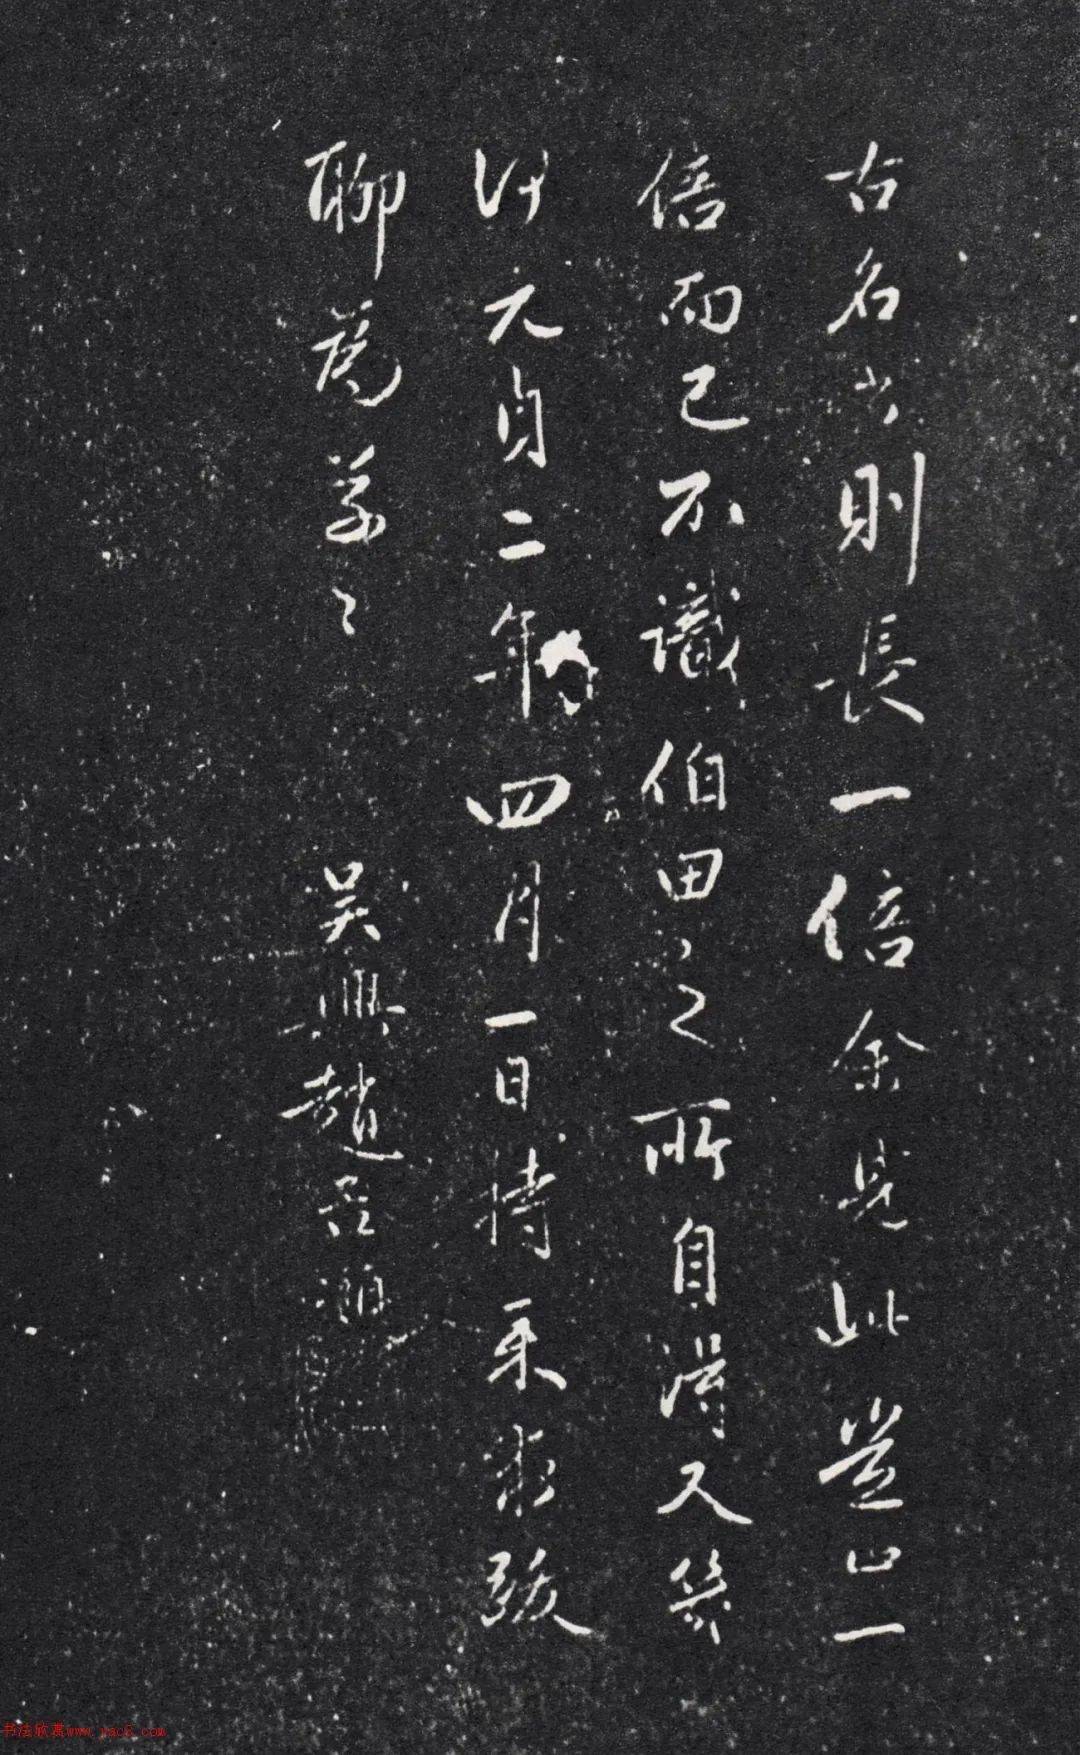 古名書則長一倍余見此豈止一
倍而已不識伯田之所自得又幾
許元貞二年四月一日持来求跋
聊為書之 吳興趙孟頫
书法欣赏www.yac8.com